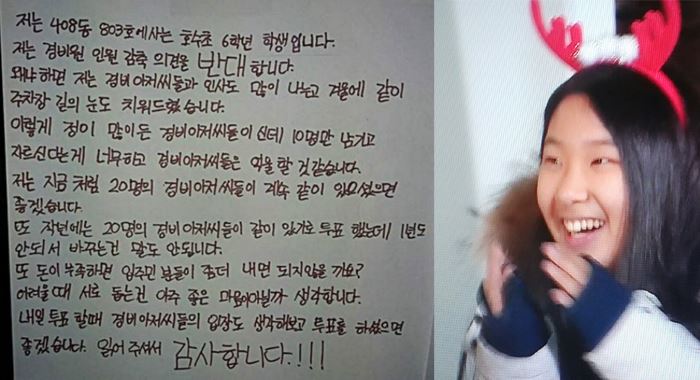 저는 408동 803호에사는 호수초 6학년 학생입니다.
저는 경비원 인원 감축 의견을 반대합니다.
왜냐하면 저는 경비아저씨들과 인사도 많이 나누고 겨울에 같이
주차장 길의 눈도 치워드렸습니다.
이렇게 정이 많이든 경비아저씨들이신데 10명만 남기고
자르신다는게 너무하고 경비아저씨들은 억울 할 것같습니다.
저는 지금 처럼 20명의 경비아저씨들이 계속 같이 있으셨으면
좋겠습니다.
또 작년에는 20명의 경비아저씨들이 같이 있기로 투표 했는데 1년도
안되서 바꾸는건 말도 안됩니다.
또 돈이 부족하면 입주민 분들이 좀더 내면 되지않을 까요?
어려울때 서로 돕는건 아주 좋은 마음아닐까 생각합니다.
내일 투표 할때 경비아저씨들의 입장도 생각해보고 투표를 하셨으면
좋겠습니다. 읽어 주셔서 감사합니다.!!!